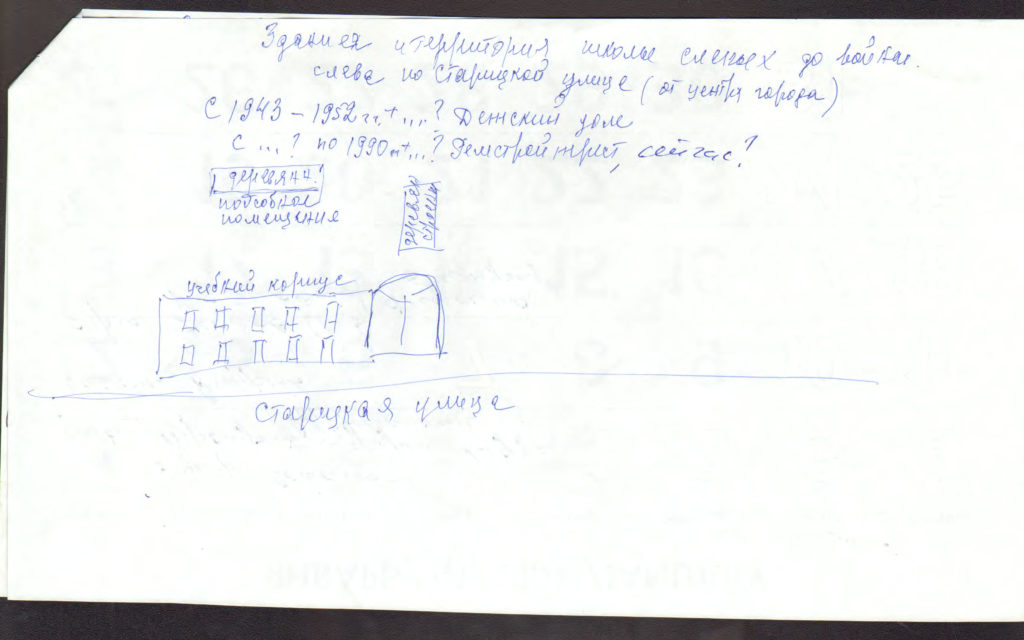 Здания и территория школы слепых до войны.
слева по Старицкой улице (от центра города)
С 1943 – 1952 гг. + ...? Детский дом
С ...? по 1990 гг + ...? Демстройтрест, сейчас?
деревянн.
подсобное
помещения
деревян
строени
учебный корпус
Старицкая улица